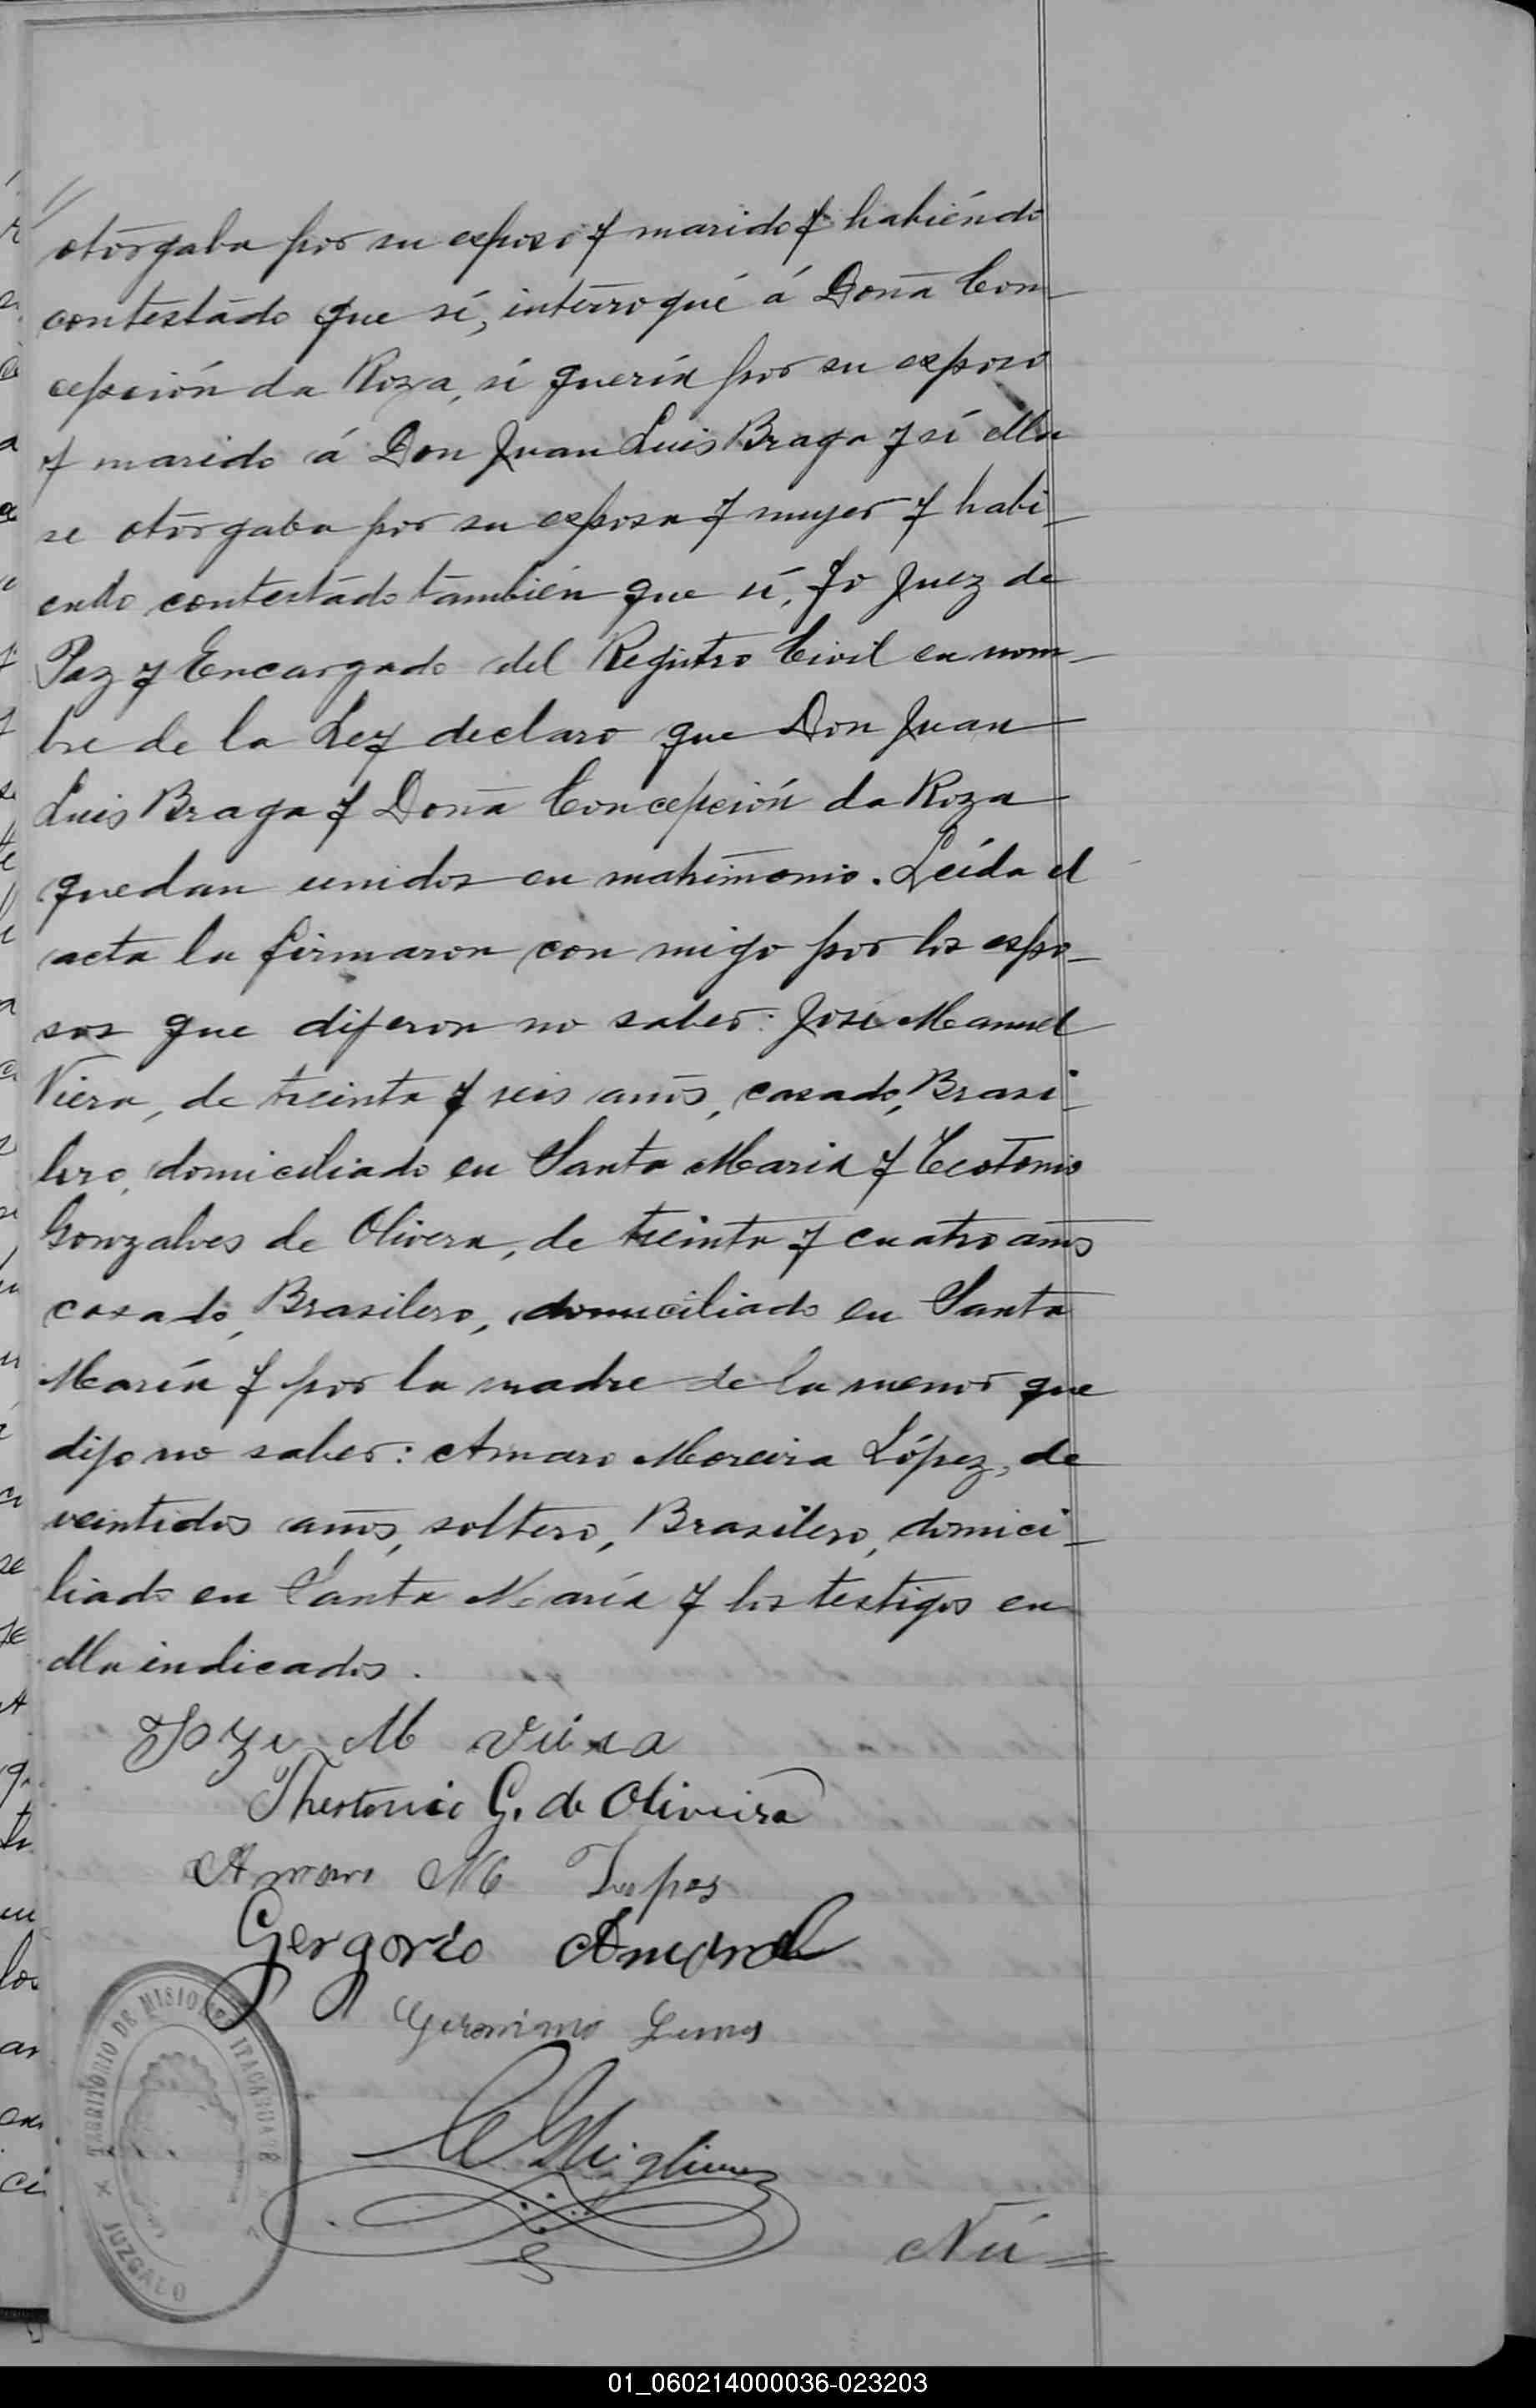 //
otorgaba por su esposo y marido y habiéndo
contestádo que sí, interrogué á Doña Con-
cepción da Roza, sí quería por su esposo
y marido á Don Juan Luis Braga y sí ella
se otorgaba por su esposa y mujer y habi-
endo contestádo también que sí, Yo Juez de
Paz y Encargado del Registro Civil en nom-
bre de la Ley declaro que Don Juan
Luis Braga y Doña Concepción da Roza
quedan unidos en matrimonio. Leída el
acta la firmaron con migo por los espo-
sos que dijeron no saber: José Manuel
Viera, de treinta y seis años, casado, Brasi-
lero, domiciliado en Santa María y Teotonio
Gonzalves de Olivera, de treinta y cuatro años
casado, Brasilero, domiciliado en Santa
María y por la madre de la menor que
dijo no saber: Amaro Moreira López, de
veintidos años, soltero, Brasilero, domici-
liado en Santa María y los testigos en
ella indicados.
Joze M Viera
Theotonio G. de Oliveira
Amaro M Lopes
Gergorio Amaral
Geronimo Lemos
TERRITORIO DE MISIONES ITACARUARÉ
JUZGADO
Nú=
01_060214000036-023203